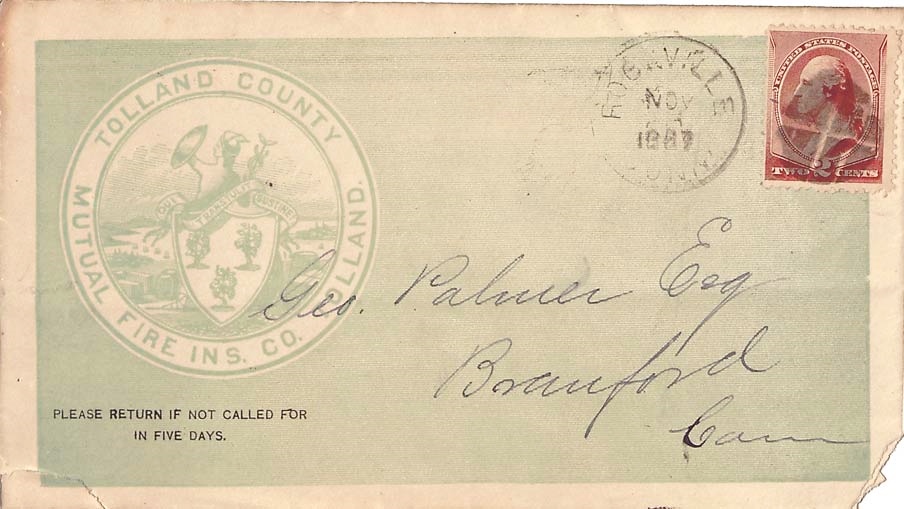 TOLLAND COUNTY
MUTUAL FIRE INS. CO. TOLLAND.
QUI TRANSTULIT SUSTINET
ROCKVILLE
NOV
1887
CONN.
UNITED STATES POSTAGE
TWO 2 CENTS
Geo. Palmer Esq
Branford
Conn
PLEASE RETURN IF NOT CALLED FOR
IN FIVE DAYS.